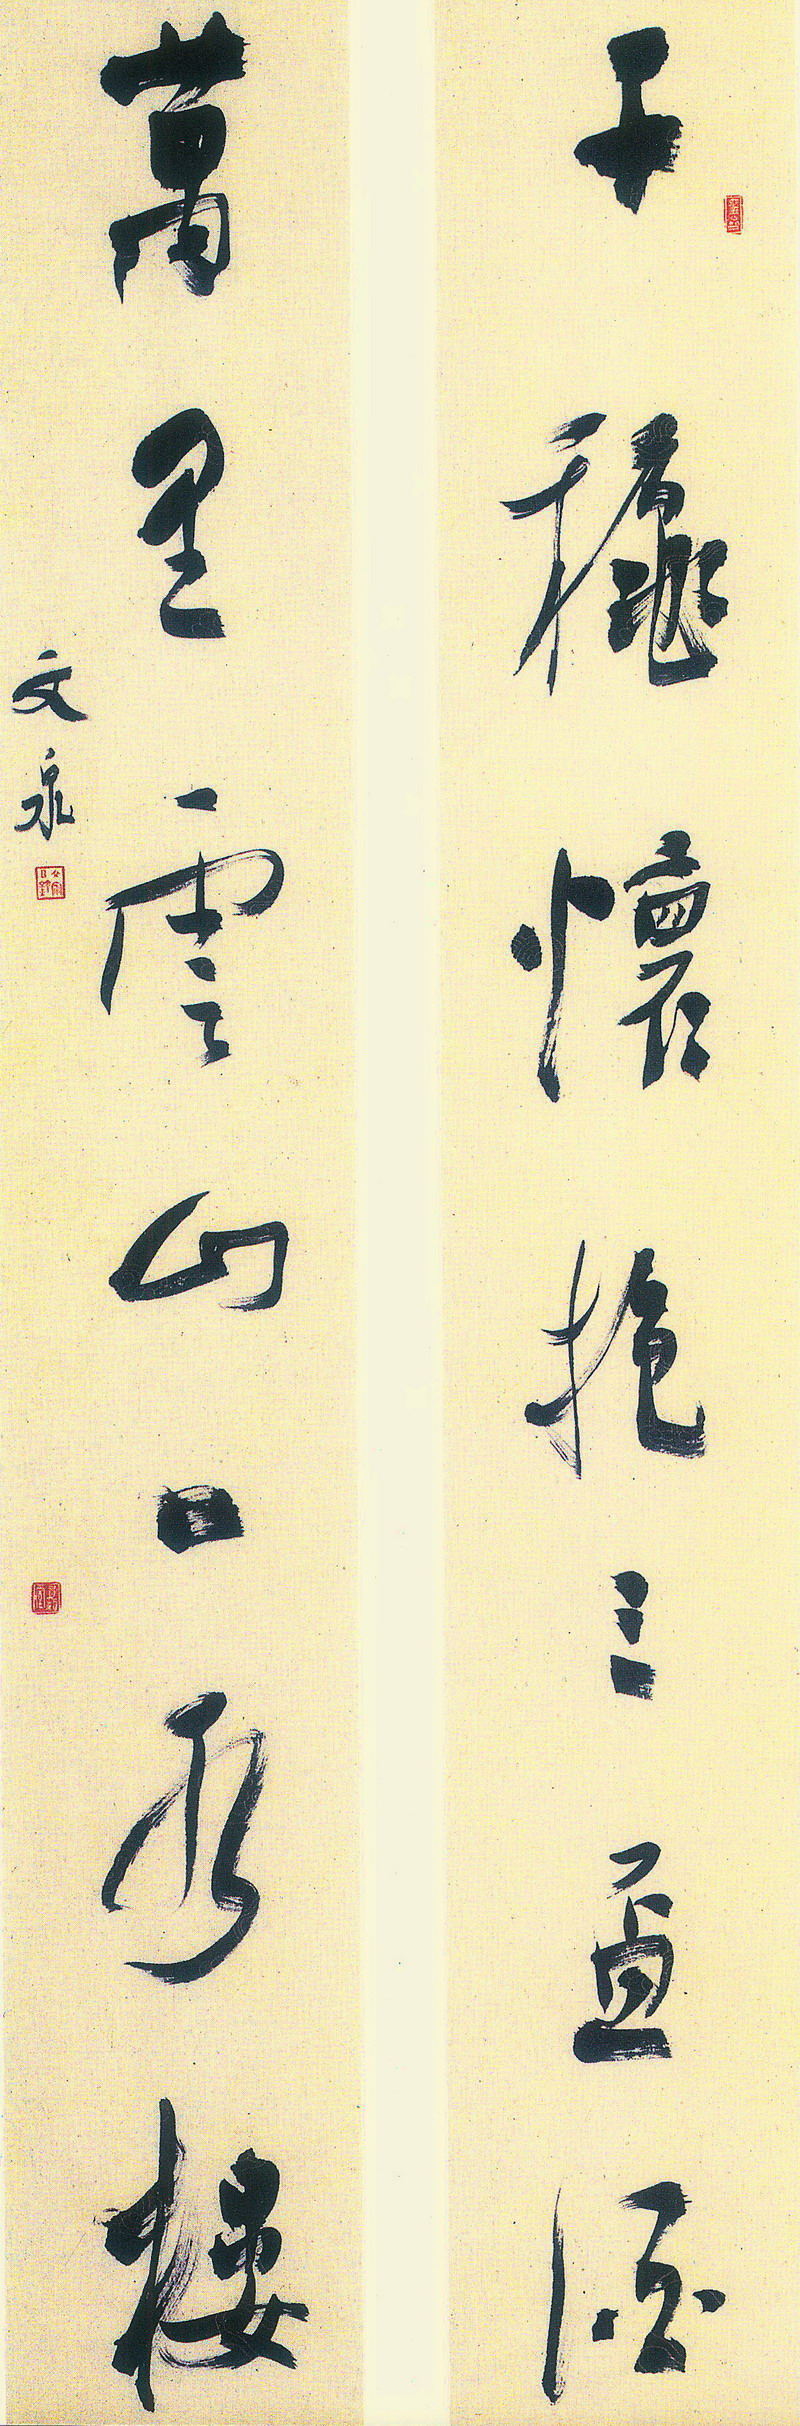 千穐懷抱三盃酒
萬里雲山一水樓
文泉